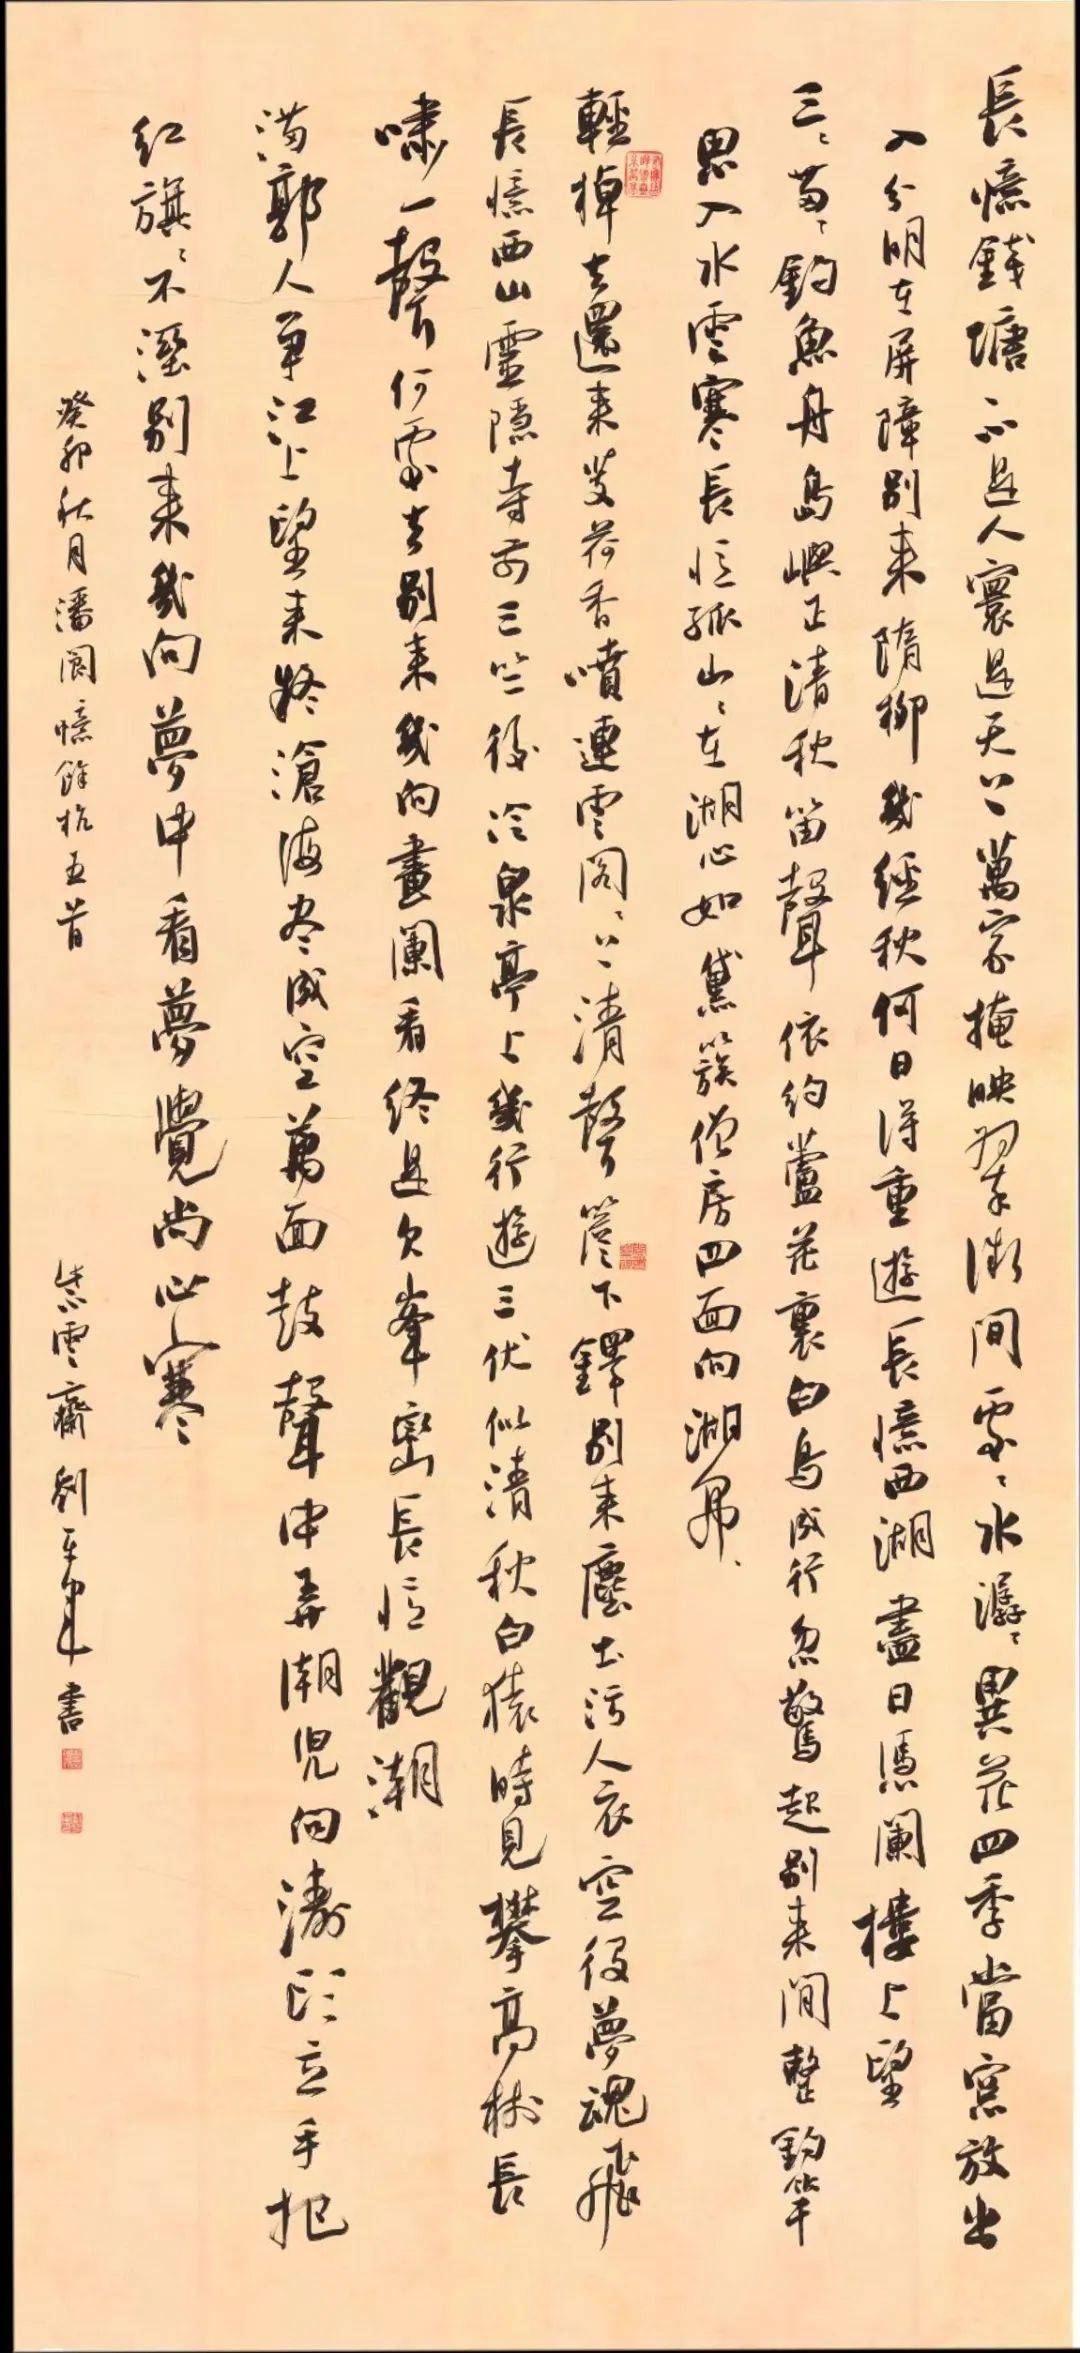 長憶錢塘不是人寰是天上萬家掩映翠微間處〻水潺〻異花四季當窓放出
入分明在屏障別來隋柳幾經秋何日得重遊長憶西湖盡日憑闌樓上望
三〻兩〻釣魚舟島嶼正清秋笛聲依約蘆花裏白鳥成行忽驚起別來閒整釣竿
思入水雲寒長憶孤山〻在湖心如黛簇僧房四面向湖開
輕棹去還來芰荷香噴連雲閣〻上清聲簷下鐸別來塵土污人衣空役夢魂飛
長憶西山靈隱寺前三竺後冷泉亭上幾行遊三伏似清秋白猿時見攀高樹長
嘯一聲何處去別來幾向畫闌看終是欠峯巒長憶觀潮
滿郭人爭江上望來疑滄海盡成空萬面鼓聲中弄潮兒向濤頭立手把
紅旗〻不溼別來幾向夢中看夢覺尚心寒
癸卯秋月潘閬憶餘杭五首 雲齋劉書